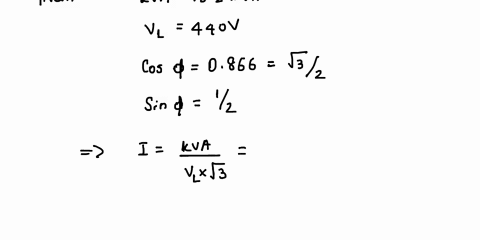 V_L = 440V
Cos ϕ = 0.866 = √3/2
Sin ϕ = 1/2
=> I = kVA / V_L × √3 =